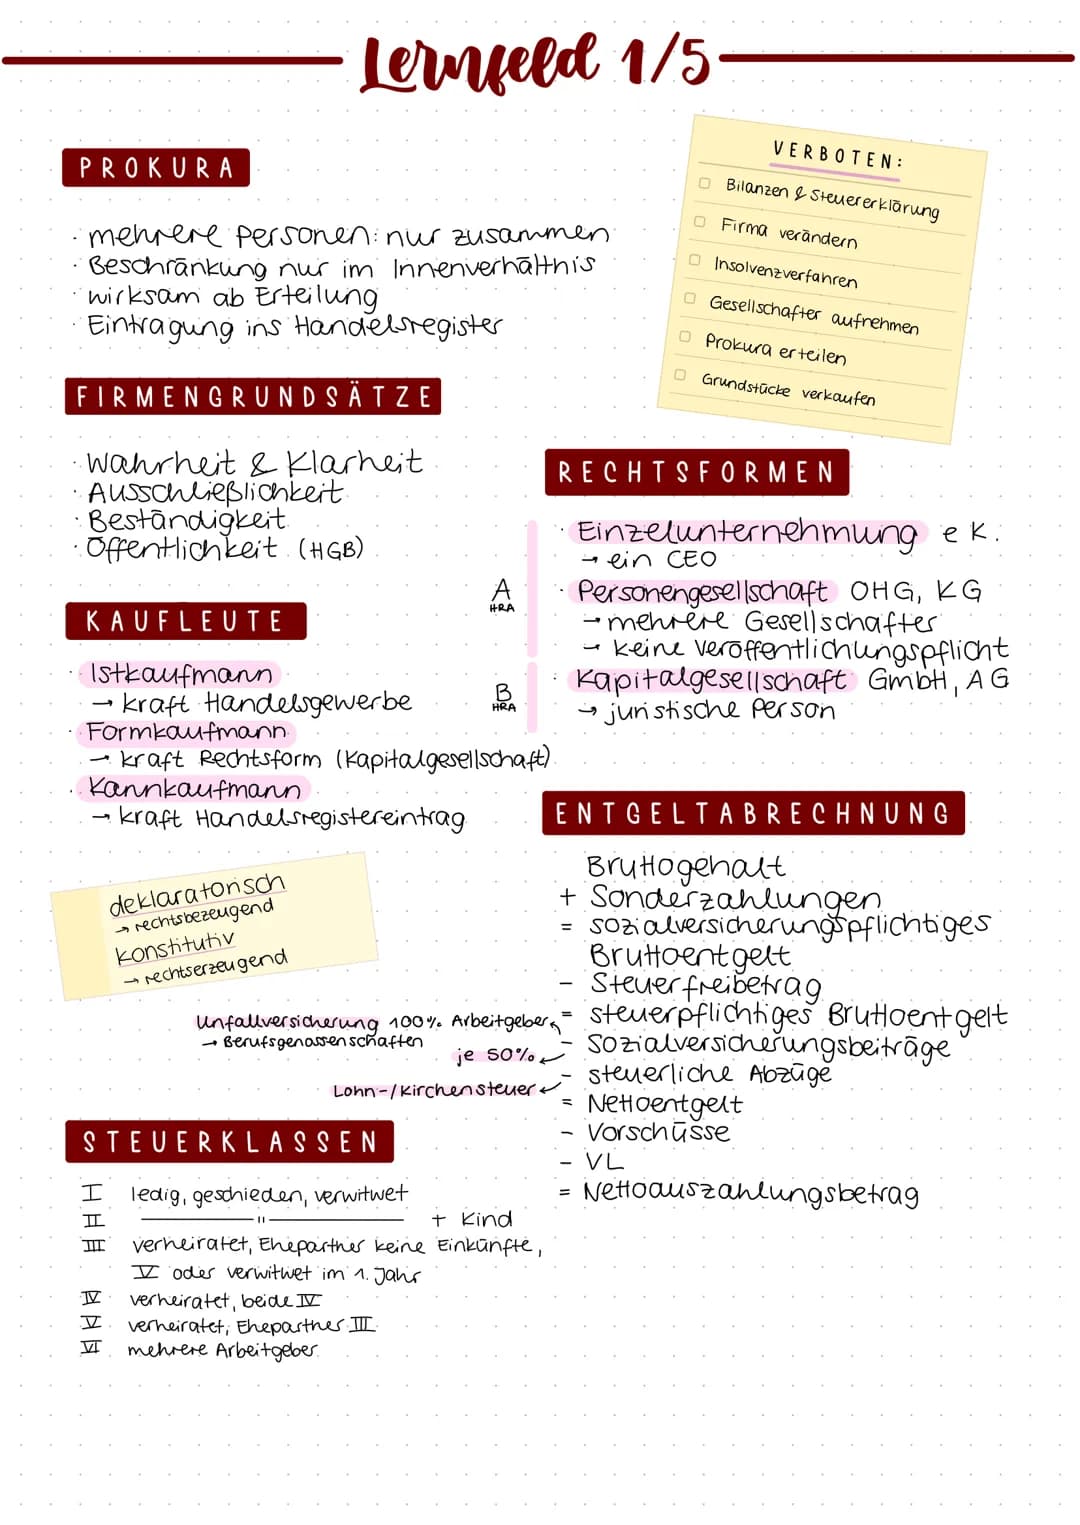 Lernfeld 1/5
PROKURA
· mehrere Personen: nur zusammen
· Beschränkung nur im Innenverhältnis
· wirksam ab Erteilung
· Eintragung ins Handelsregister
VERBOTEN:
Bilanzen & Steuererklärung
Firma verändern
Insolvenzverfahren
Gesellschafter aufnehmen
Prokura erteilen
Grundstücke verkaufen
FIRMENGRUNDSÄTZE
· Wahrheit & Klarheit
· Ausschließlichkeit
· Beständigkeit
· Öffentlichkeit (HGB)
KAUFLEUTE
· Istkaufmann
→ kraft Handelsgewerbe
· Formkaufmann
→ kraft Rechtsform (Kapitalgesellschaft)
· Kannkaufmann
→ kraft Handelsregistereintrag
deklaratorisch
→ rechtsbezeugend
konstitutiv
→ rechtserzeugend
RECHTSFORMEN
A
HRA
· Einzelunternehmung e K.
→ ein CEO
· Personengesellschaft OHG, KG
→ mehrere Gesellschafter
→ keine Veröffentlichungspflicht
B
HRA
· Kapitalgesellschaft GmbH, AG
→ juristische Person
ENTGELTABRECHNUNG
Bruttogehalt
+ Sonderzahlungen
= sozialversicherungspflichtiges
Bruttoentgelt
- Steuerfreibetrag
= steuerpflichtiges Bruttoentgelt
- Sozialversicherungsbeiträge
- steuerliche Abzüge
= Nettoentgelt
- Vorschüsse
- VL
= Nettoauszahlungsbetrag
Unfallversicherung 100% Arbeitgeber
→ Berufsgenossenschaften
je 50%
Lohn-/Kirchensteuer
STEUERKLASSEN
I ledig, geschieden, verwitwet
II —— " —— + Kind
III verheiratet, Ehepartner keine Einkünfte,
V oder verwitwet im 1. Jahr
IV verheiratet, beide IV
V verheiratet, Ehepartner III
VI mehrere Arbeitgeber